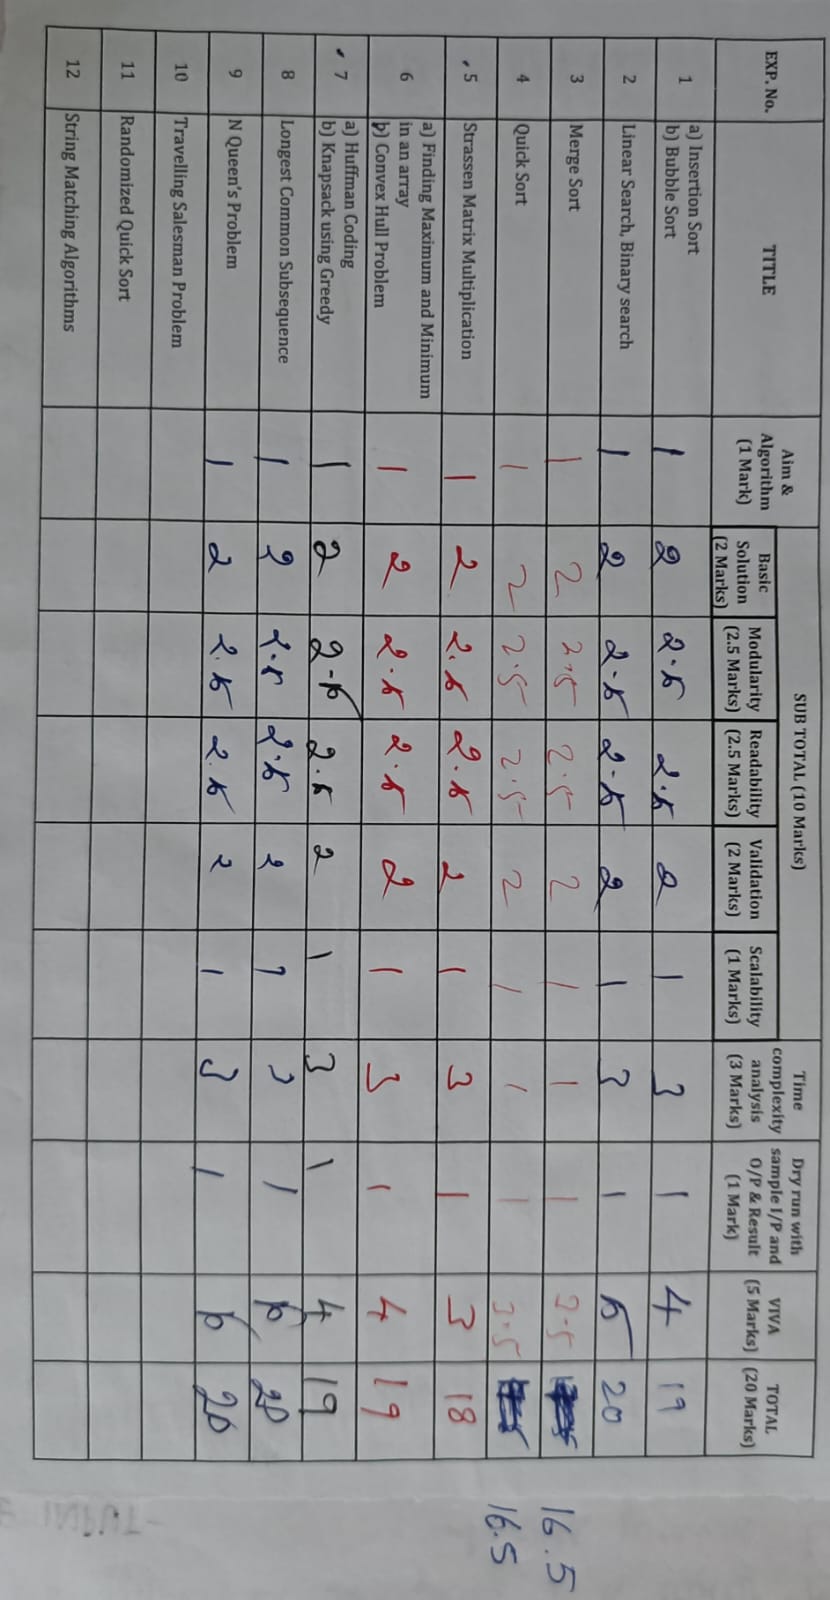 EXP. No. TITLE SUB TOTAL (10 Marks)
Aim & Algorithm (1 Mark) Basic Solution (2 Marks) Modularity (2.5 Marks) Readability (2.5 Marks) Validation (2 Marks) Scalability (1 Marks) Time complexity analysis (3 Marks) Dry run with sample I/P and O/P & Result (1 Mark) VIVA (5 Marks) TOTAL (20 Marks)
1 a) Insertion Sort
b) Bubble Sort 1 2 2.5 2.5 2 1 3 1 4 19
2 Linear Search, Binary search 1 2 2.5 2.5 2 1 3 1 5 20
3 Merge Sort 1 2 2.5 2.5 2 1 1 1 3.5 16.5
4 Quick Sort 1 2 2.5 2.5 2 1 1 1 3.5 16.5
5 Strassen Matrix Multiplication 1 2 2.5 2.5 2 1 3 1 3 18
6 a) Finding Maximum and Minimum
in an array
b) Convex Hull Problem 1 2 2.5 2.5 2 1 3 1 4 19
7 a) Huffman Coding
b) Knapsack using Greedy 1 2 2.5 2.5 2 1 3 1 4 19
8 Longest Common Subsequence 1 2 2.5 2.5 2 1 3 1 5 20
9 N Queen's Problem 1 2 2.5 2.5 2 1 3 1 5 20
10 Travelling Salesman Problem
11 Randomized Quick Sort
12 String Matching Algorithms